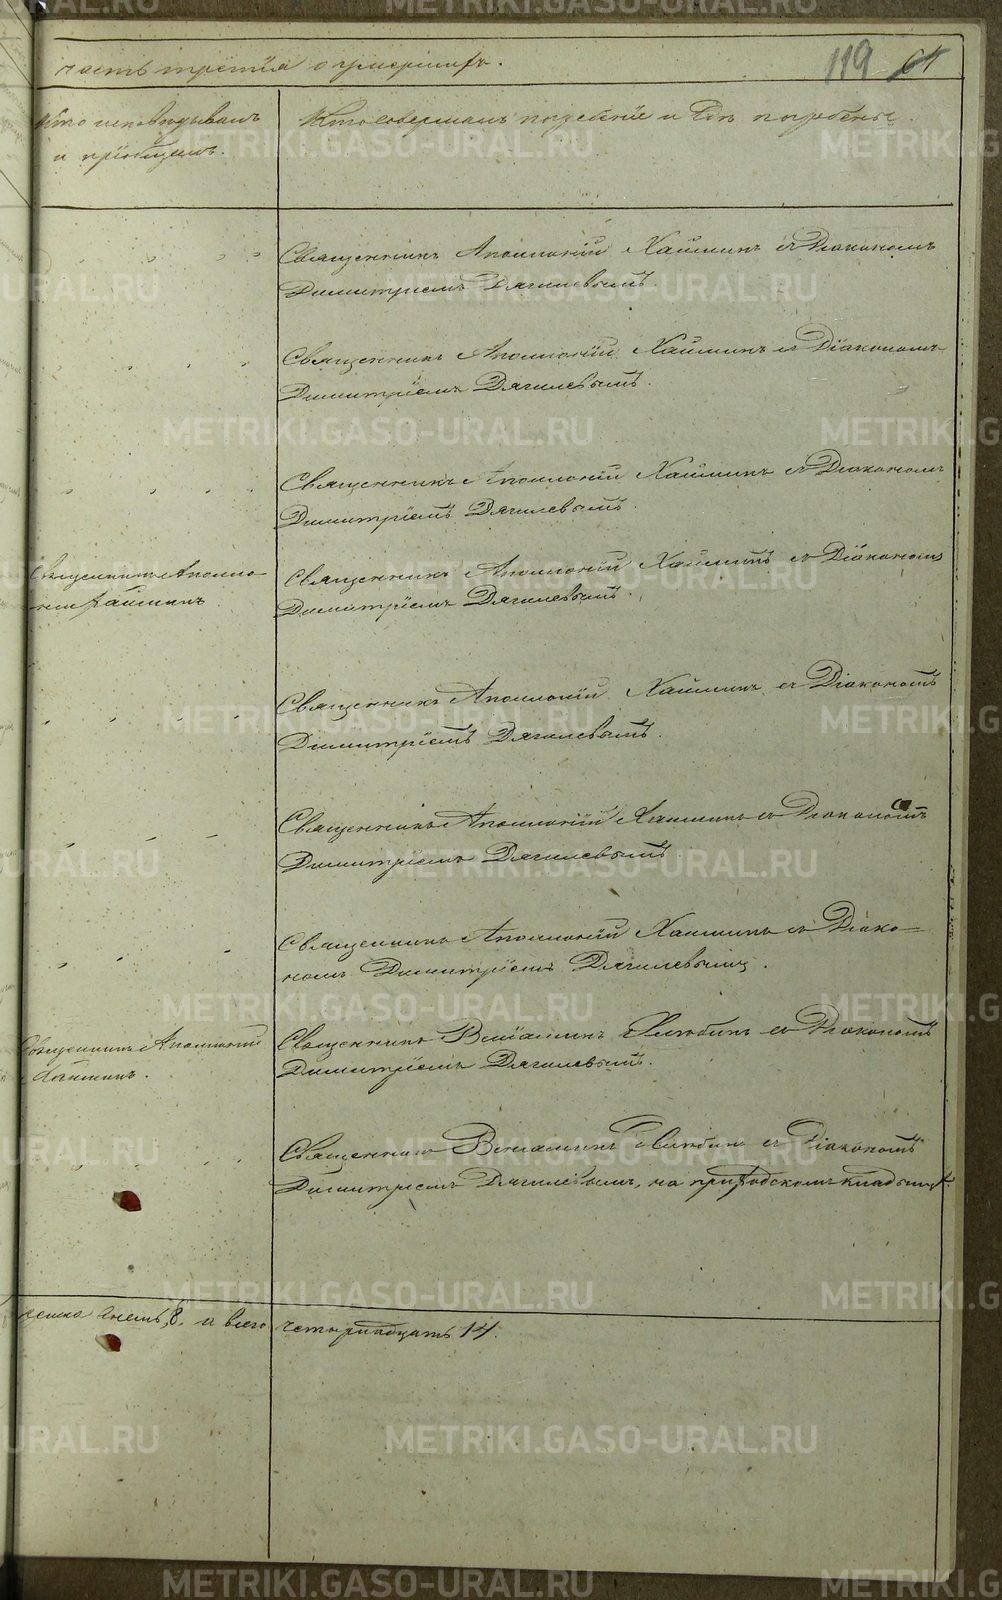 часть третія о умершихъ.
119 64
Кто исповѣдывалъ
и пріобщалъ.
Кто совершалъ погребеніе и гдѣ погребены.
Священникъ Аполлоній Хайминъ съ Діакономъ
Димитріемъ Дягилевымъ.
Священникъ Аполлоній Хайминъ съ Діакономъ
Димитріемъ Дягилевымъ.
Священникъ Аполлоній Хайминъ съ Діакономъ
Димитріемъ Дягилевымъ.
Священникъ Аполло-
ній Хайминъ
Священникъ Аполлоній Хайминъ съ Діакономъ
Димитріемъ Дягилевымъ.
Священникъ Аполлоній Хайминъ съ Діакономъ
Димитріемъ Дягилевымъ.
Священникъ Аполлоній Хайминъ съ Діакономъ
Димитріемъ Дягилевымъ
Священникъ Аполлоній Хайминъ съ Діако-
номъ Димитріемъ Дягилевымъ.
Священникъ Аполлоній
Хайминъ.
Священникъ Веніаминъ съ Діакономъ
Димитріемъ Дягилевымъ.
Священникъ Веніаминъ съ Діакономъ
Димитріемъ Дягилевымъ, на приходскомъ кладбищѣ.
8, а всего четырнадцать 14.
METRIKI.GASO-URAL.RU